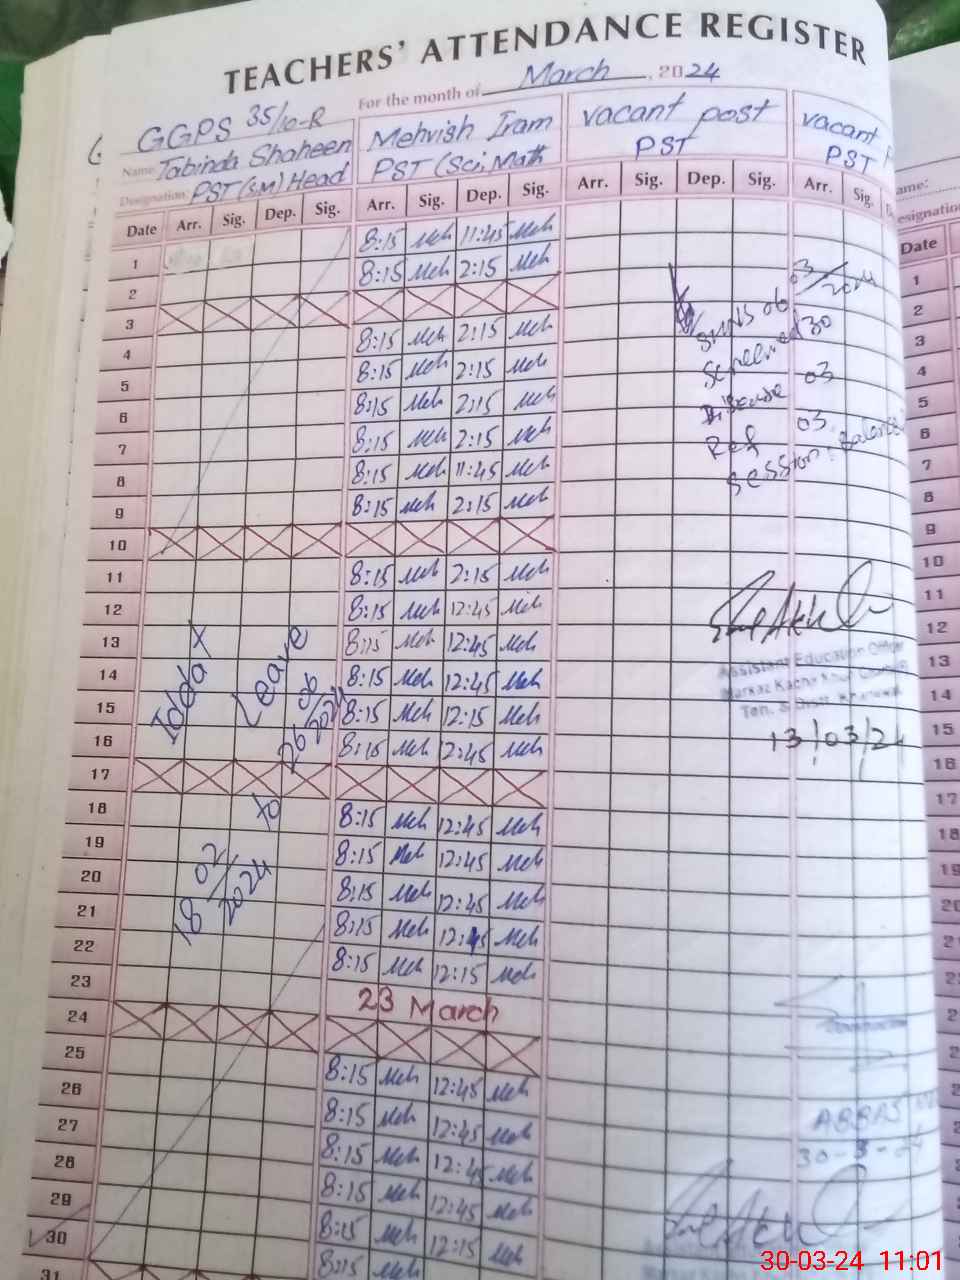 TEACHERS' ATTENDANCE REGISTER
For the month of March, 2024
GGPS 35/10-R
Name: Tabinda Shaheen
Designation: PST(SM) Head
Mehvish Iram
PST (Sci, Math
vacant post
PST
vacant
PST
Date Arr. Sig. Dep. Sig. Arr. Sig. Dep. Sig. Arr. Sig. Dep. Sig. Arr. Sig.
8:15 Meh 11:45 Meh
1 8:15 Meh 2:15 Meh
2
3 8:15 Meh 2:15 Meh
4 8:15 Meh 2:15 Meh
5 8:15 Meh 2:15 Meh
6 8:15 Meh 2:15 Meh
7 8:15 Meh 11:45 Meh
8 8:15 Meh 2:15 Meh
9
10
11 8:15 Meh 2:15 Meh
12 8:15 Meh 12:45 Meh
13 8:15 Meh 12:45 Meh
14 8:15 Meh 12:45 Meh
15 8:15 Meh 12:15 Meh
16 8:15 Meh 12:45 Meh
17
18 8:15 Meh 12:45 Meh
19 8:15 Meh 12:45 Meh
20 8:15 Meh 12:45 Meh
21 8:15 Meh 12:45 Meh
22 8:15 Meh 12:15 Meh
23 23 March
24
25 8:15 Meh 12:45 Meh
26 8:15 Meh 12:45 Meh
27 8:15 Meh 12:45 Meh
28 8:15 Meh 12:45 Meh
29 8:15 Meh 12:15 Meh
30 8:15 Meh
31
Iddat Leave
18/02/2024 to 26/06/2024
SMNS 06 03/2024
Screened 30
Disease 03
Ref 03
Session:
Assistant Education Officer
Markaz Kacha Khuh
Teh. & Distt. Khanewal
13/03/24
ABBAS
30-3-24
ame:
esignation
Date
1
2
3
4
5
6
7
8
9
10
11
12
13
14
15
16
17
18
19
20
30-03-24 11:01